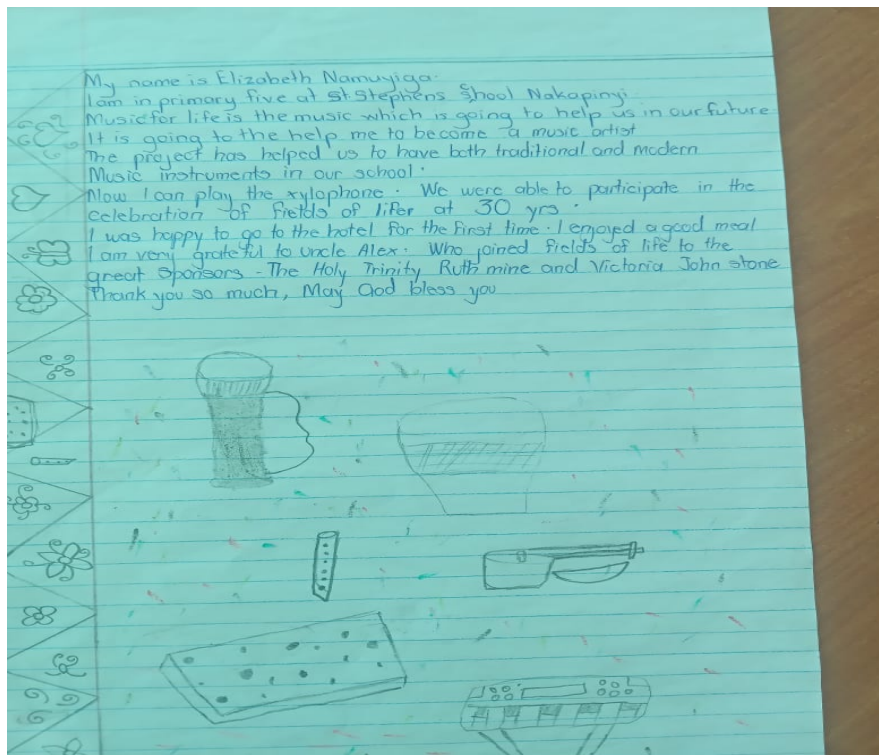 My name is Elizabeth Namuyiga.
I am in primary five at St. Stephens School Nakapinyi.
Music for life is the music which is going to help us in our future
It is going to the help me to become a music artist
The project has helped us to have both traditional and modern
Music instruments in our school.
Now I can play the xylophone. We were able to participate in the
celebration of fields of lifer at 30 yrs.
I was happy to go to the hotel for the first time. I enjoyed a good meal
I am very grateful to uncle Alex. Who joined fields of life to the
great Sponsors - The Holy Trinity Ruth mine and Victoria John stone
Thank you so much, May God bless you